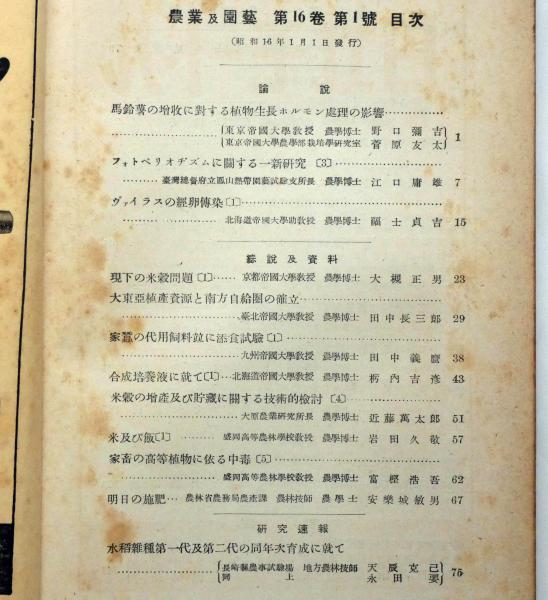 農業及園藝 第16卷 第1號 目次
(昭和16年1月1日發行)
論說
馬鈴薯の增收に對する植物生長ホルモン處理の影響
東京帝國大學敎授 農學博士 野口彌吉
東京帝國大學農學部栽培學硏究室 菅原友太
1
フォトペリオヂズムに關する一新硏究〔3〕
臺灣總督府立鳳山熱帶園藝試驗支所長 農學博士 江口庸雄 7
ヴァイラスの經卵傳染〔1〕
北海道帝國大學助敎授 農學博士 福士貞吉 15
綜說及資料
現下の米穀問題〔1〕 京都帝國大學敎授 農學博士 大槻正男 23
大東亞植產資源と南方自給圈の確立
臺北帝國大學敎授 農學博士 田中長三郞 29
家蠶の代用飼料竝に添食試驗〔1〕
九州帝國大學敎授 農學博士 田中義麿 38
合成培養液に就て〔1〕 北海道帝國大學敎授 農學博士 栃內吉彥 43
米穀の增產及び貯藏に關する技術的檢討〔4〕
大原農業硏究所長 農學博士 近藤萬太郞 51
米及び飯〔1〕 盛岡高等農林學校敎授 農學博士 岩田久敬 57
家畜の高等植物に依る中毒〔5〕
盛岡高等農林學校敎授 農學博士 富樫浩吾 62
明日の施肥 農林省農務局農產課 農林技師 農學士 安樂城敏男 67
硏究速報
水稻雜種第一代及第二代の同年次育成に就て
長崎縣農事試驗場 地方農林技師 天辰克己
同上 永田要
75